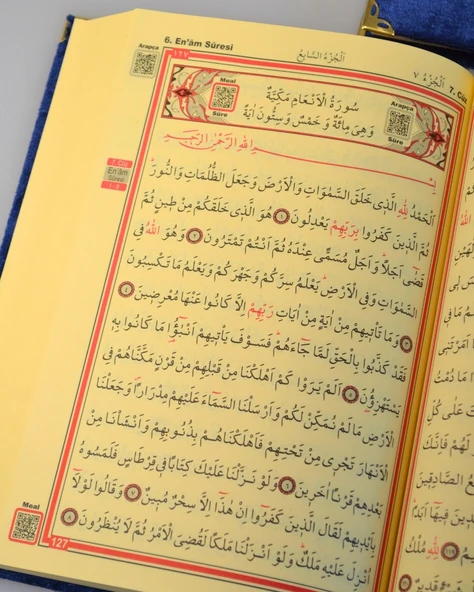 6. En'âm Sûresi
اَلْجُزْءُ السَّابِعُ
Arapça
١٢٧
Meal
Sûre
سُورَةُ الْاَنْعَامِ مَكِّيَّةٌ
وَهِيَ مِائَةٌ وَ خَمْسٌ وَ سِتُّونَ اٰيَةً
Arapça
Sûre
7. Cüz
En'âm
Sûresi
1-8
بِسْمِ اللّٰهِ الرَّحْمٰنِ الرَّحِيمِ
اَلْحَمْدُ لِلّٰهِ الَّذِى خَلَقَ السَّمٰوَاتِ وَالْاَرْضَ وَجَعَلَ الظُّلُمَاتِ وَالنُّورَ
ثُمَّ الَّذِينَ كَفَرُوا بِرَبِّهِمْ يَعْدِلُونَ ١ هُوَ الَّذِى خَلَقَكُمْ مِنْ طِينٍ ثُمَّ
قَضٰى اَجَلًا وَاَجَلٌ مُسَمًّى عِنْدَهُ ثُمَّ اَنْتُمْ تَمْتَرُونَ ٢ وَهُوَ اللّٰهُ فِى
السَّمٰوَاتِ وَفِى الْاَرْضِ يَعْلَمُ سِرَّكُمْ وَجَهْرَكُمْ وَيَعْلَمُ مَا تَكْسِبُونَ
٣ وَمَا تَاْتِيهِمْ مِنْ اٰيَةٍ مِنْ اٰيَاتِ رَبِّهِمْ اِلَّا كَانُوا عَنْهَا مُعْرِضِينَ ٤
فَقَدْ كَذَّبُوا بِالْحَقِّ لَمَّا جَاءَهُمْ فَسَوْفَ يَاْتِيهِمْ اَنْبٰٓؤُا مَا كَانُوا بِهِ
يَسْتَهْزِؤُنَ ٥ اَلَمْ يَرَوْا كَمْ اَهْلَكْنَا مِنْ قَبْلِهِمْ مِنْ قَرْنٍ مَكَّنَّاهُمْ فِى
الْاَرْضِ مَا لَمْ نُمَكِّنْ لَكُمْ وَاَرْسَلْنَا السَّمَاءَ عَلَيْهِمْ مِدْرَارًا وَجَعَلْنَا
الْاَنْهَارَ تَجْرِى مِنْ تَحْتِهِمْ فَاَهْلَكْنَاهُمْ بِذُنُوبِهِمْ وَاَنْشَاْنَا مِنْ
بَعْدِهِمْ قَرْنًا اٰخَرِينَ ٦ وَلَوْ نَزَّلْنَا عَلَيْكَ كِتَابًا فِى قِرْطَاسٍ فَلَمَسُوهُ
بِاَيْدِيهِمْ لَقَالَ الَّذِينَ كَفَرُوا اِنْ هٰذَا اِلَّا سِحْرٌ مُبِينٌ ٧ وَقَالُوا لَوْلَا
اُنْزِلَ عَلَيْهِ مَلَكٌ وَلَوْ اَنْزَلْنَا مَلَكًا لَقُضِىَ الْاَمْرُ ثُمَّ لَا يُنْظَرُونَ ٨
Meal
127
اَلْجُزْءُ ٧